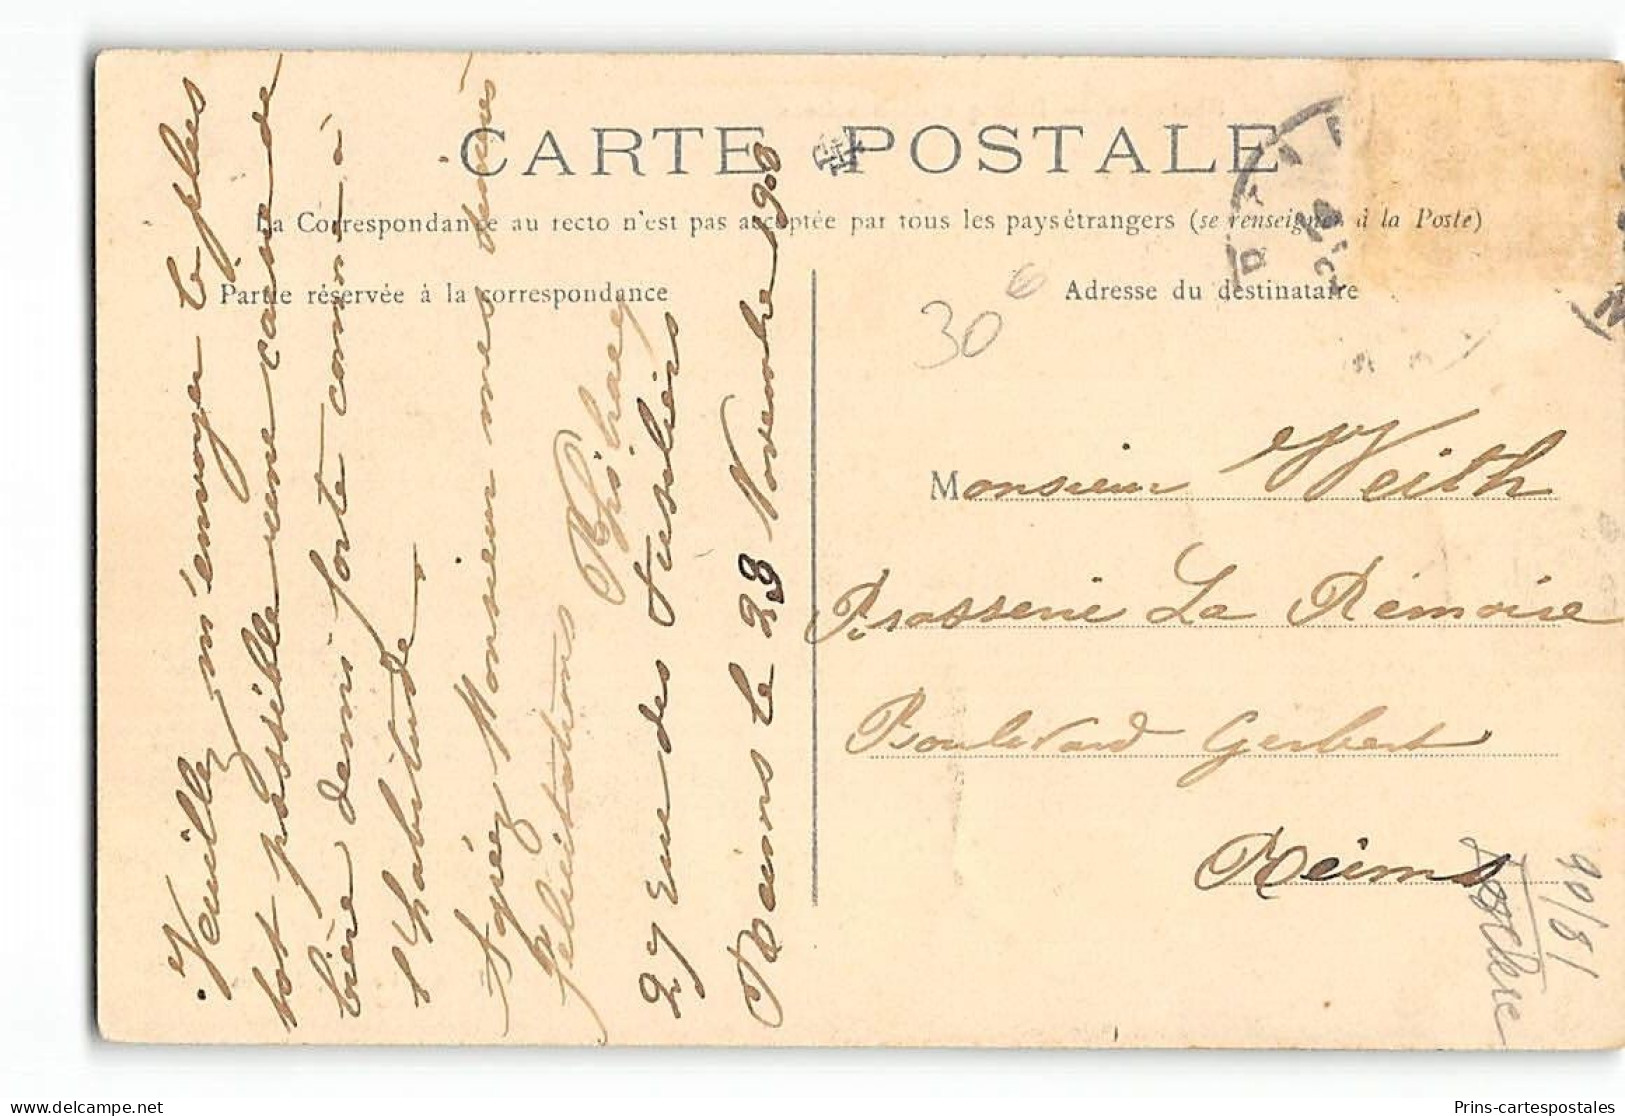 CARTE POSTALE
La Correspondance au recto n'est pas acceptée par tous les pays étrangers (se renseigner à la Poste)
Partie réservée à la correspondance
Adresse du destinataire
30
6
Veuillez m'envoyer le plus
tot possible une caisse de
bière demi forte comme à
l'habitude
Agréez Monsieur mes sincères
félicitations
27 Rue des Fusiliers
Reims le 23 Novembre 1908
Monsieur Veith
Brasserie La Rémoise
Boulevard Gerbert
Reims
90/81
Prins-cartespostales